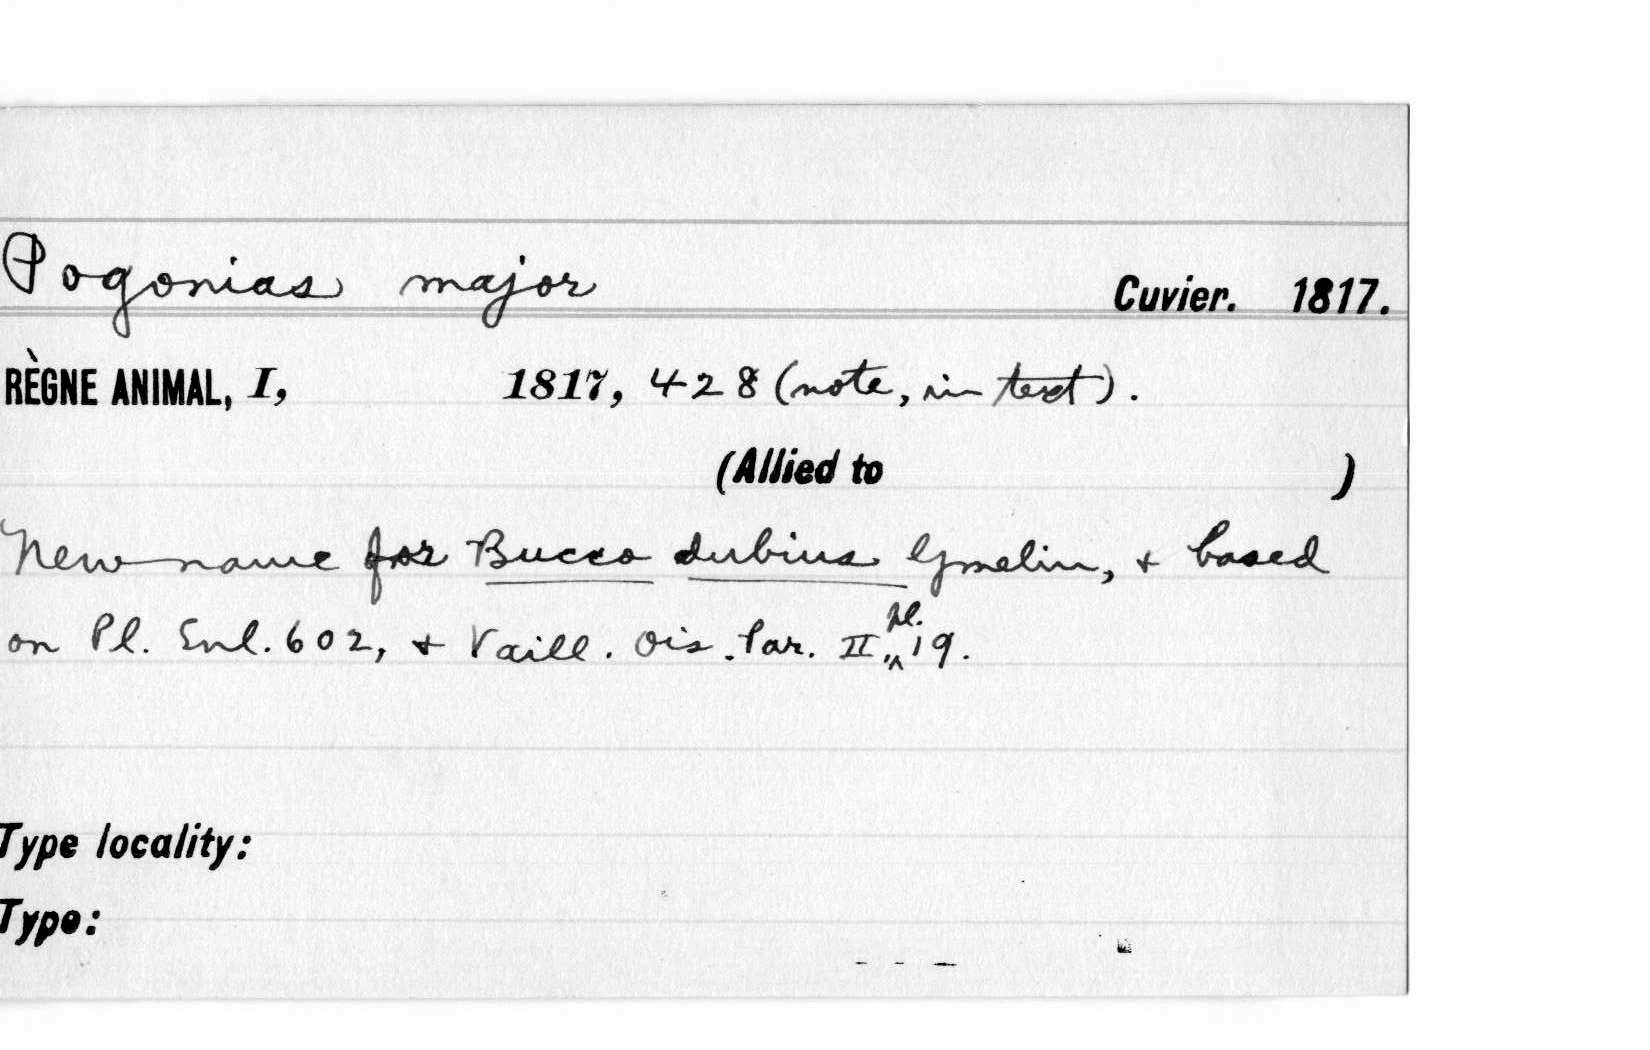 Pogonias major Cuvier. 1817.
RÈGNE ANIMAL, I, 1817, 428 (note, in text).
(Allied to )
New name for Bucco dubius Gmelin, + based
on Pl. Enl. 602, + Vaill. Ois. Par. II, pl. 19.
Type locality:
Type: